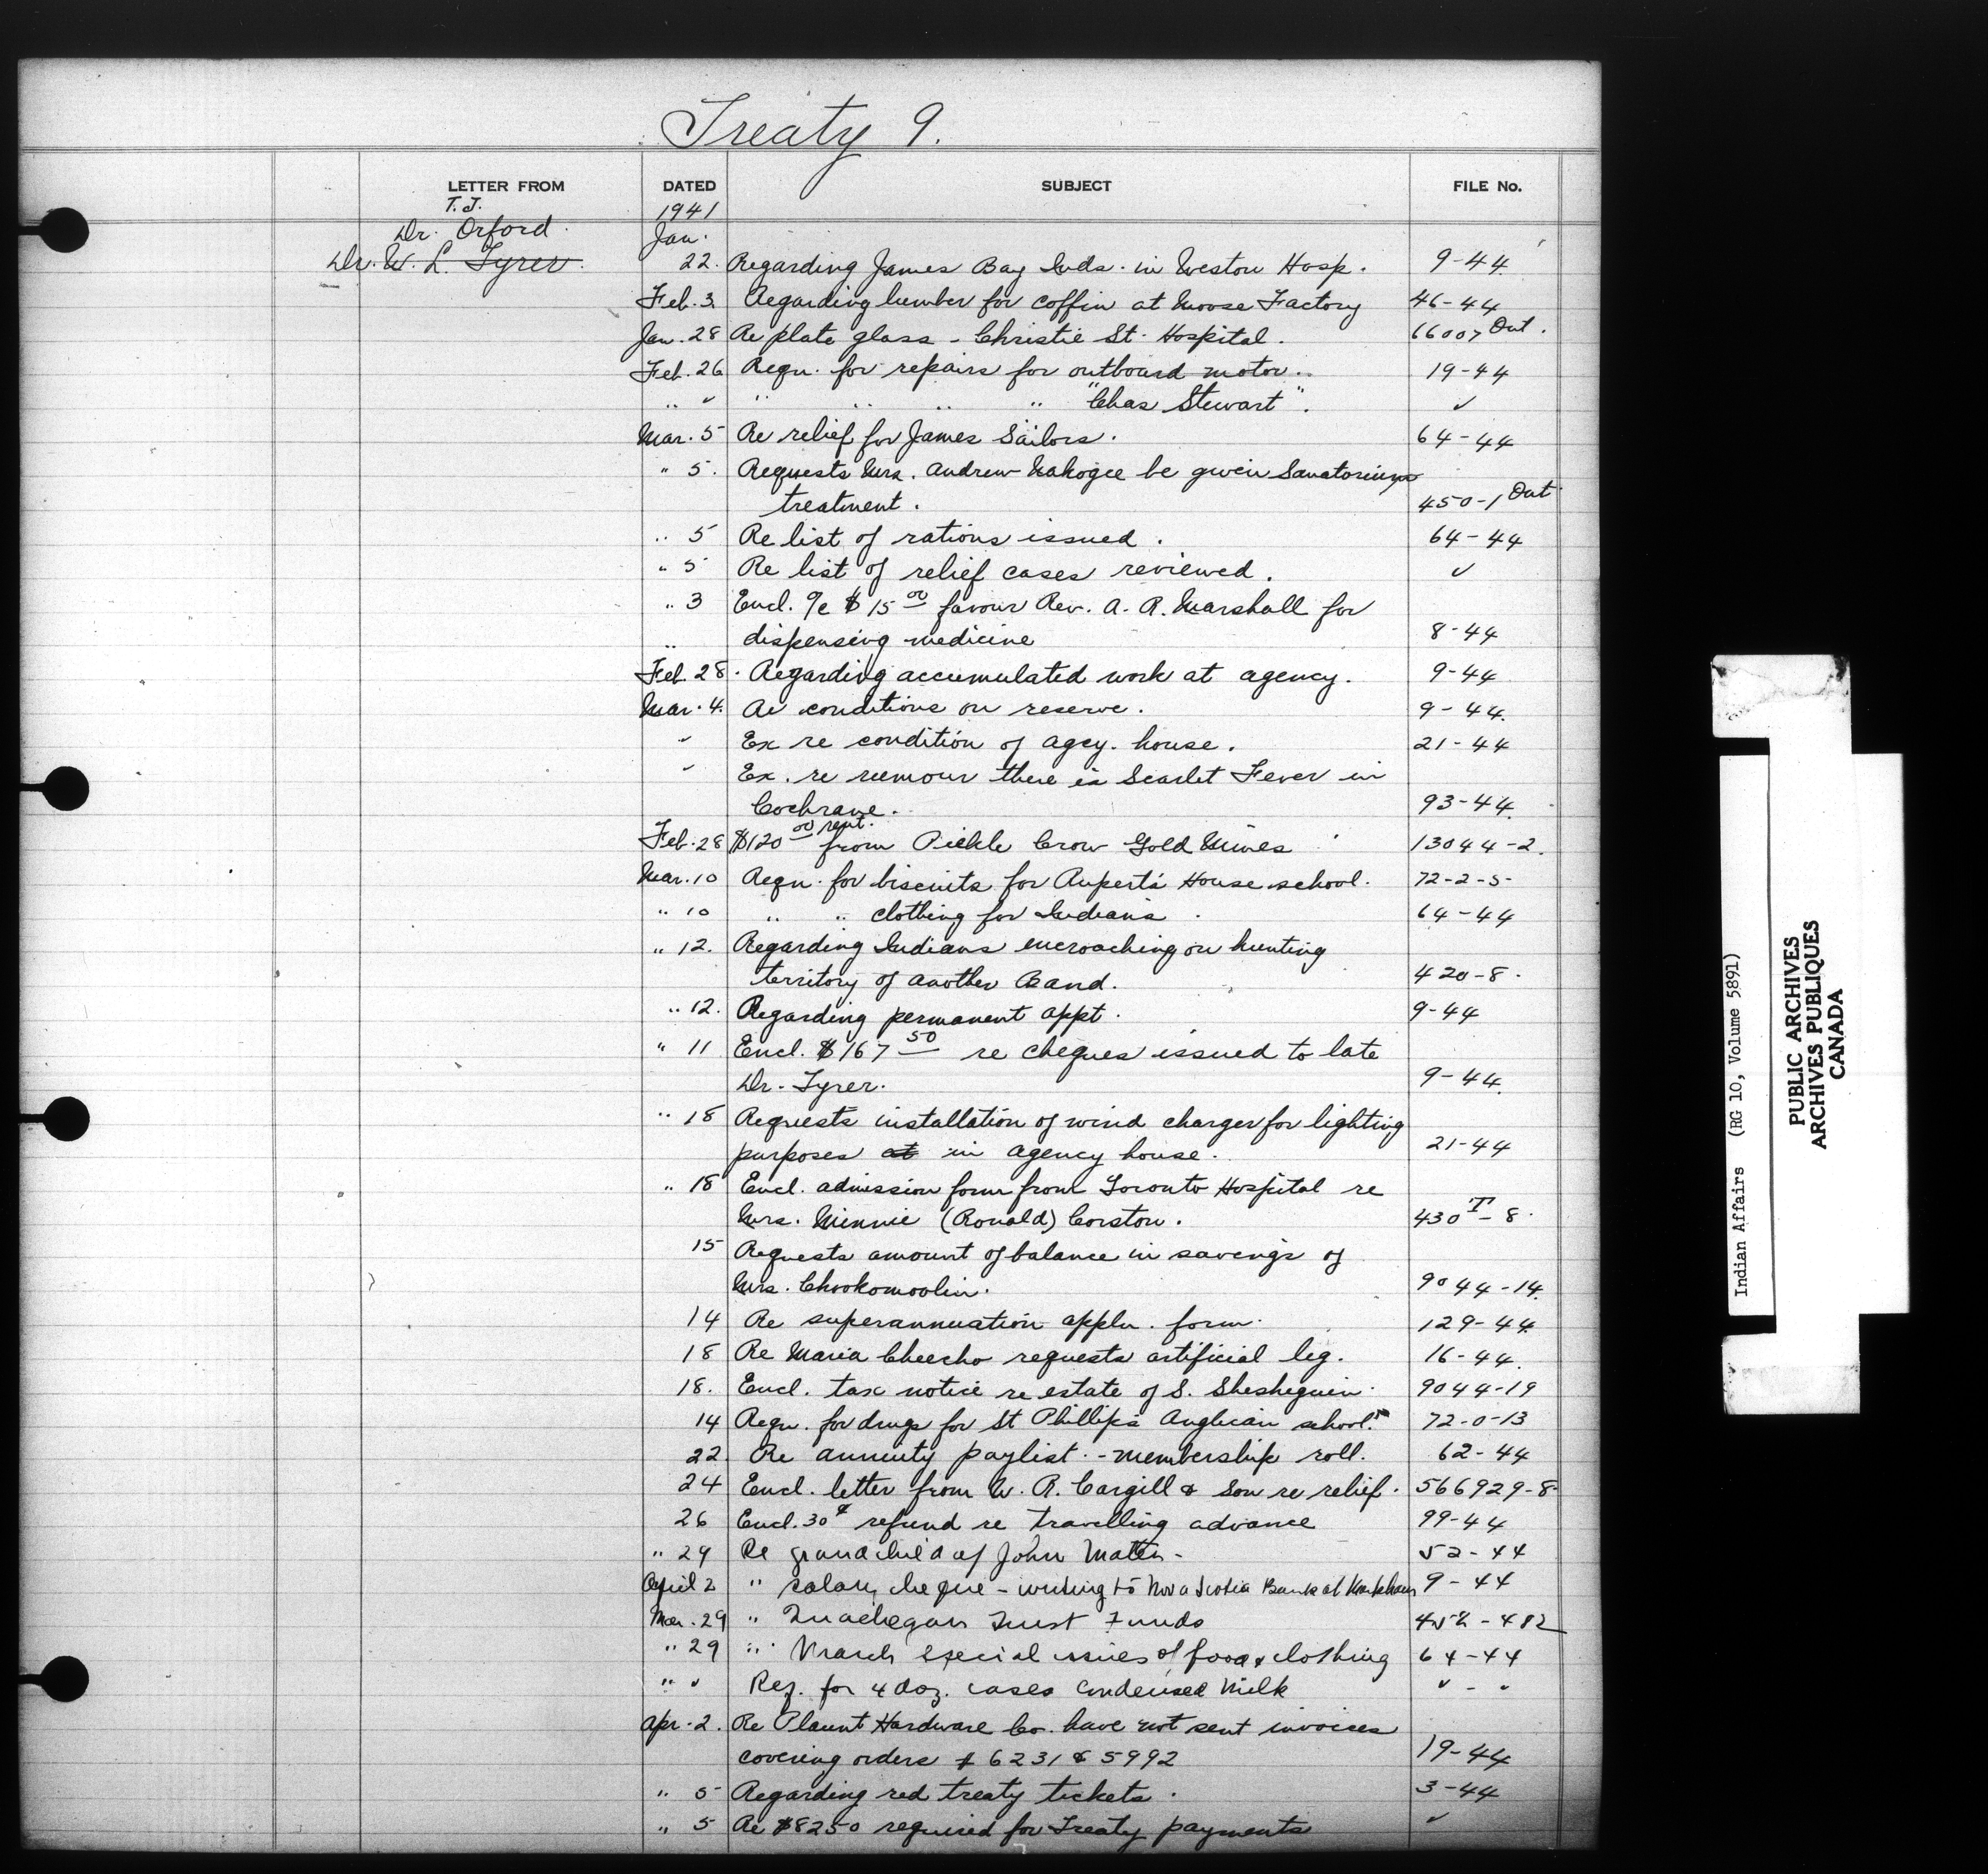 Treaty 9.
LETTER FROM DATED SUBJECT FILE No.
T.J. 1941
Dr. Orford. Jan.
Dr. W. L. Tyrer. 22. Regarding James Bay Inds. in Weston Hosp. 9-44
Feb. 3 Regarding lumber for coffin at Moose Factory 46-44
Jan. 28 Re plate glass - Christie St. Hospital. 66007 Ont.
Feb. 26 Reqn. for repairs for outboard motor. 19-44
" ✓ " " " " "Chas Stewart". ✓
Mar. 5 Re relief for James Sailors. 64-44
" 5. Requests Mrs. Andrew Nakogee be given Sanatorium
treatment. 450-1 Ont
" 5 Re list of rations issued. 64-44
" 5 Re list of relief cases reviewed. ✓
" 3 Encl. a/c $15 00 favour Rev. A. R. Marshall for
" dispensing medicine 8-44
Feb. 28. Regarding accumulated work at agency. 9-44
Mar. 4. Re conditions on reserve. 9-44.
✓ Ex re condition of agcy. house. 21-44
✓ Ex. re rumour there is Scarlet Fever in
Cochrane. 93-44.
Feb. 28 $120 00 rent. from Pickle Crow Gold Mines 13044-2.
Mar. 10 Reqn. for biscuits for Rupert's House school. 72-2-5-
" 10 " " clothing for Indians. 64-44
" 12. Regarding Indians encroaching on hunting
territory of another Band. 420-8.
" 12. Regarding permanent appt. 9-44
" 11 Encl. $167 50 re cheques issued to late
Dr. Tyrer. 9-44.
" 18 Requests installation of wind charger for lighting
purposes at in agency house. 21-44
" 18 Encl. admission form from Toronto Hospital re
Mrs. Minnie (Ronald) Corston. 430 T-8.
15 Requests amount of balance in savings of
Mrs. Chookomoolin. 9044-14.
14 Re superannuation appln. form. 129-44.
18 Re Maria Cheecho requests artificial leg. 16-44.
18. Encl. tax notice re estate of S. Sheshequin. 9044-19
14 Reqn. for drugs for St Phillip's Anglican school. 72-0-13
22. Re annuity paylist - membership roll. 62-44
24 Encl. letter from W. R. Cargill & Son re relief. 566929-8-
26 Encl. 30¢ refund re travelling advance 99-44
" 29 Re grandchild of John 52-44
April 2 " salary cheque - writing to Nova Scotia Bank at 9-44
Mar. 29 " Trust Funds 452-482
" 29 " March special issues of food & clothing 64-44
" ✓ Req. for 4 doz. cases Condensed Milk ✓ - "
Apr. 2. Re Plaunt Hardware Co. have not sent invoices
covering orders # 6231 & 5992 19-44
" 5 Regarding red treaty tickets. 3-44
" 5 Re $8250 required for Treaty payments ✓
Indian Affairs (RG 10, Volume 5891)
PUBLIC ARCHIVES
ARCHIVES PUBLIQUES
CANADA